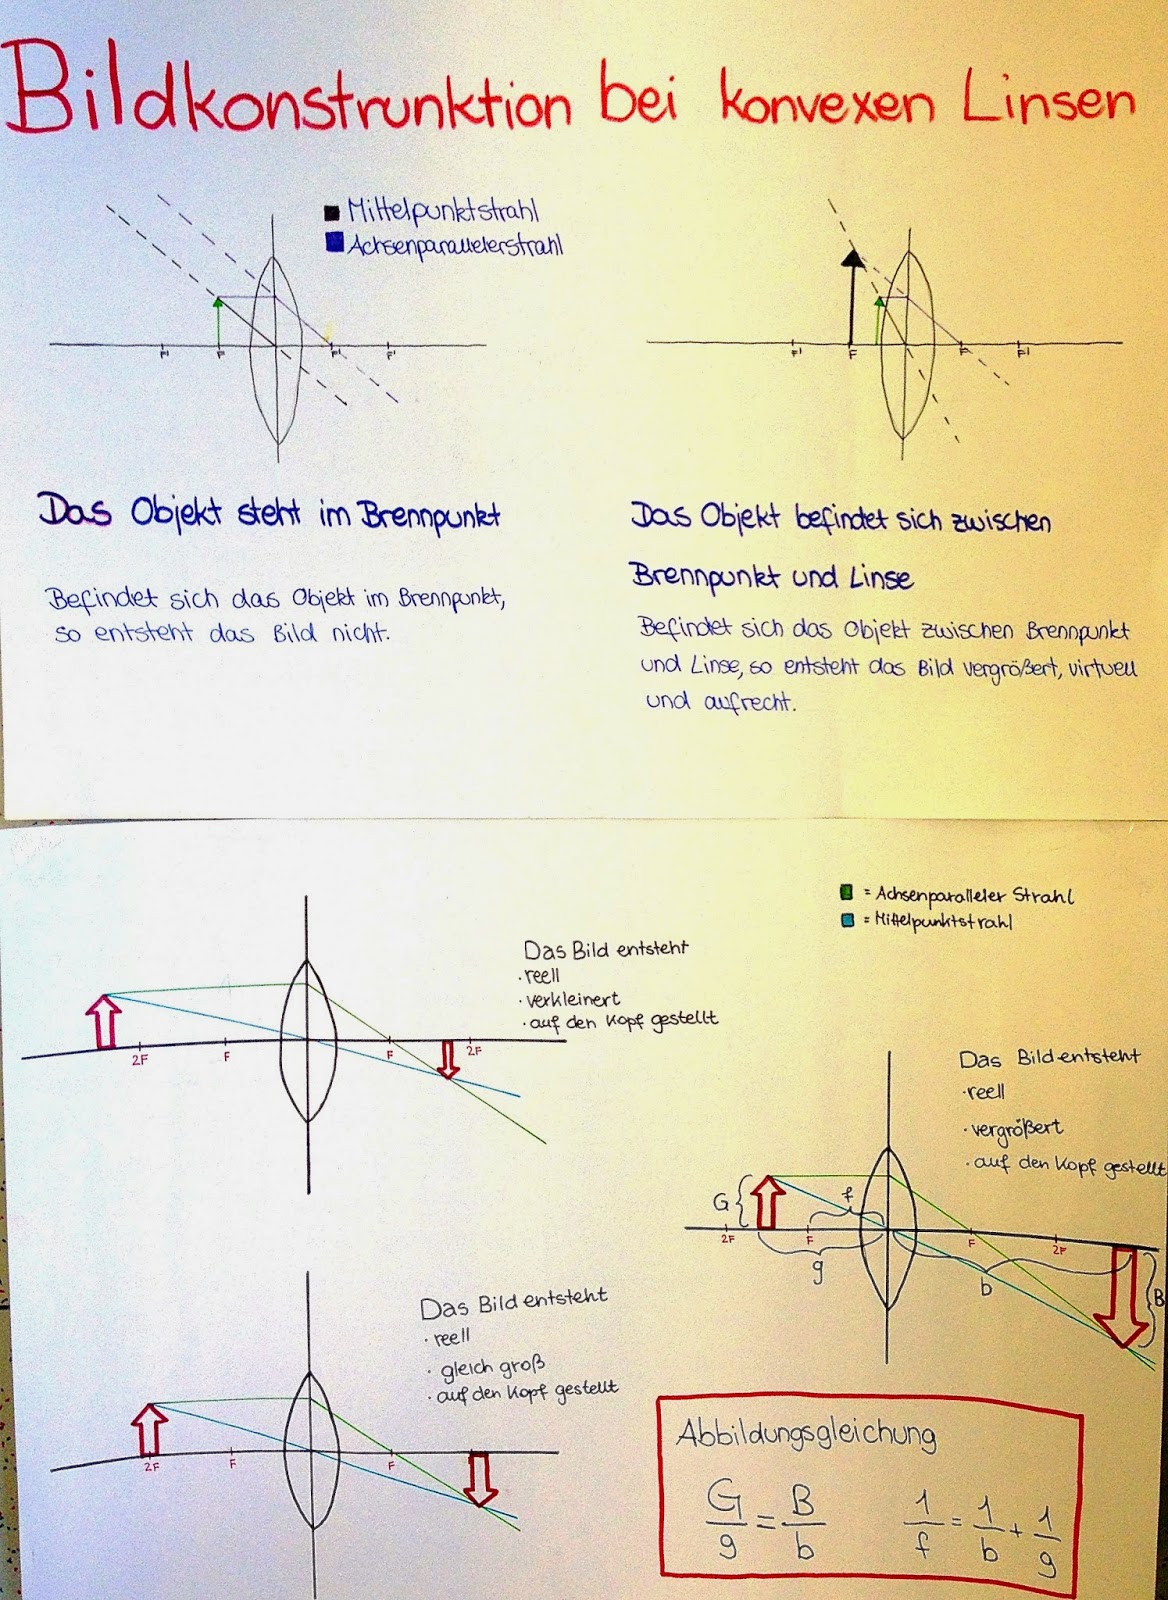 Bildkonstrunktion bei konvexen Linsen
Mittelpunktstrahl
Achsenparallelerstrahl
F' F F' F'
F' F F F'
Das Objekt steht im Brennpunkt
Befindet sich das Objekt im Brennpunkt,
so entsteht das Bild nicht.
Das Objekt befindet sich zwischen
Brennpunkt und Linse
Befindet sich das Objekt zwischen Brennpunkt
und Linse, so entsteht das Bild vergrößert, virtuell
und aufrecht.
= Achsenparalleler Strahl
= Mittelpunktstrahl
Das Bild entsteht
· reell
· verkleinert
· auf den Kopf gestellt
2F F F 2F
Das Bild entsteht
· reell
· vergrößert
· auf den Kopf gestellt
G f
2F F F 2F
g b B
Das Bild entsteht
· reell
· gleich groß
· auf den Kopf gestellt
2F F F
Abbildungsgleichung
G/g = B/b 1/f = 1/b + 1/g